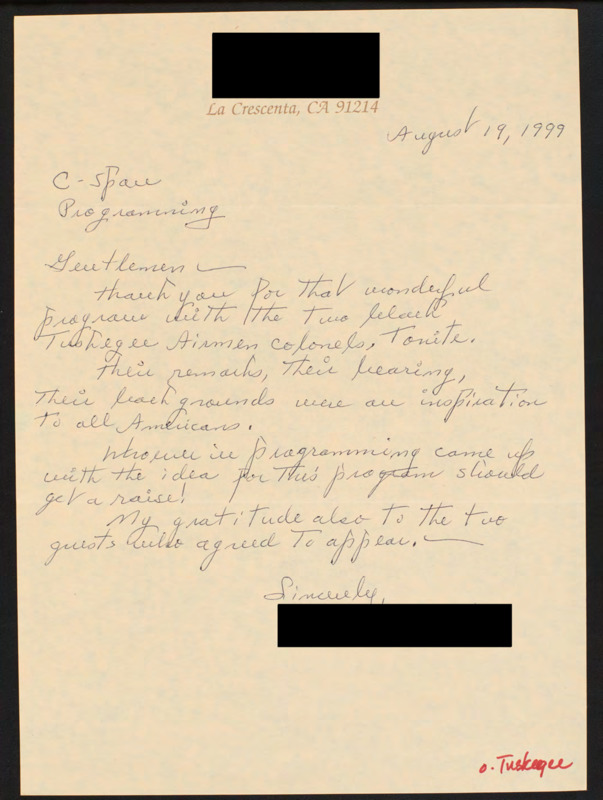 La Crescenta, CA 91214
August 19, 1999
C-Span
Programming
Gentlemen —
Thank you for that wonderful
program with the two black
Tuskegee Airmen colonels, tonite.
Their remarks, their bearing,
their backgrounds were an inspiration
to all Americans.
Whoever in programming came up
with the idea for this program should
get a raise!
My gratitude also to the two
guests who agreed to appear. —
Sincerely,
o. Tuskegee